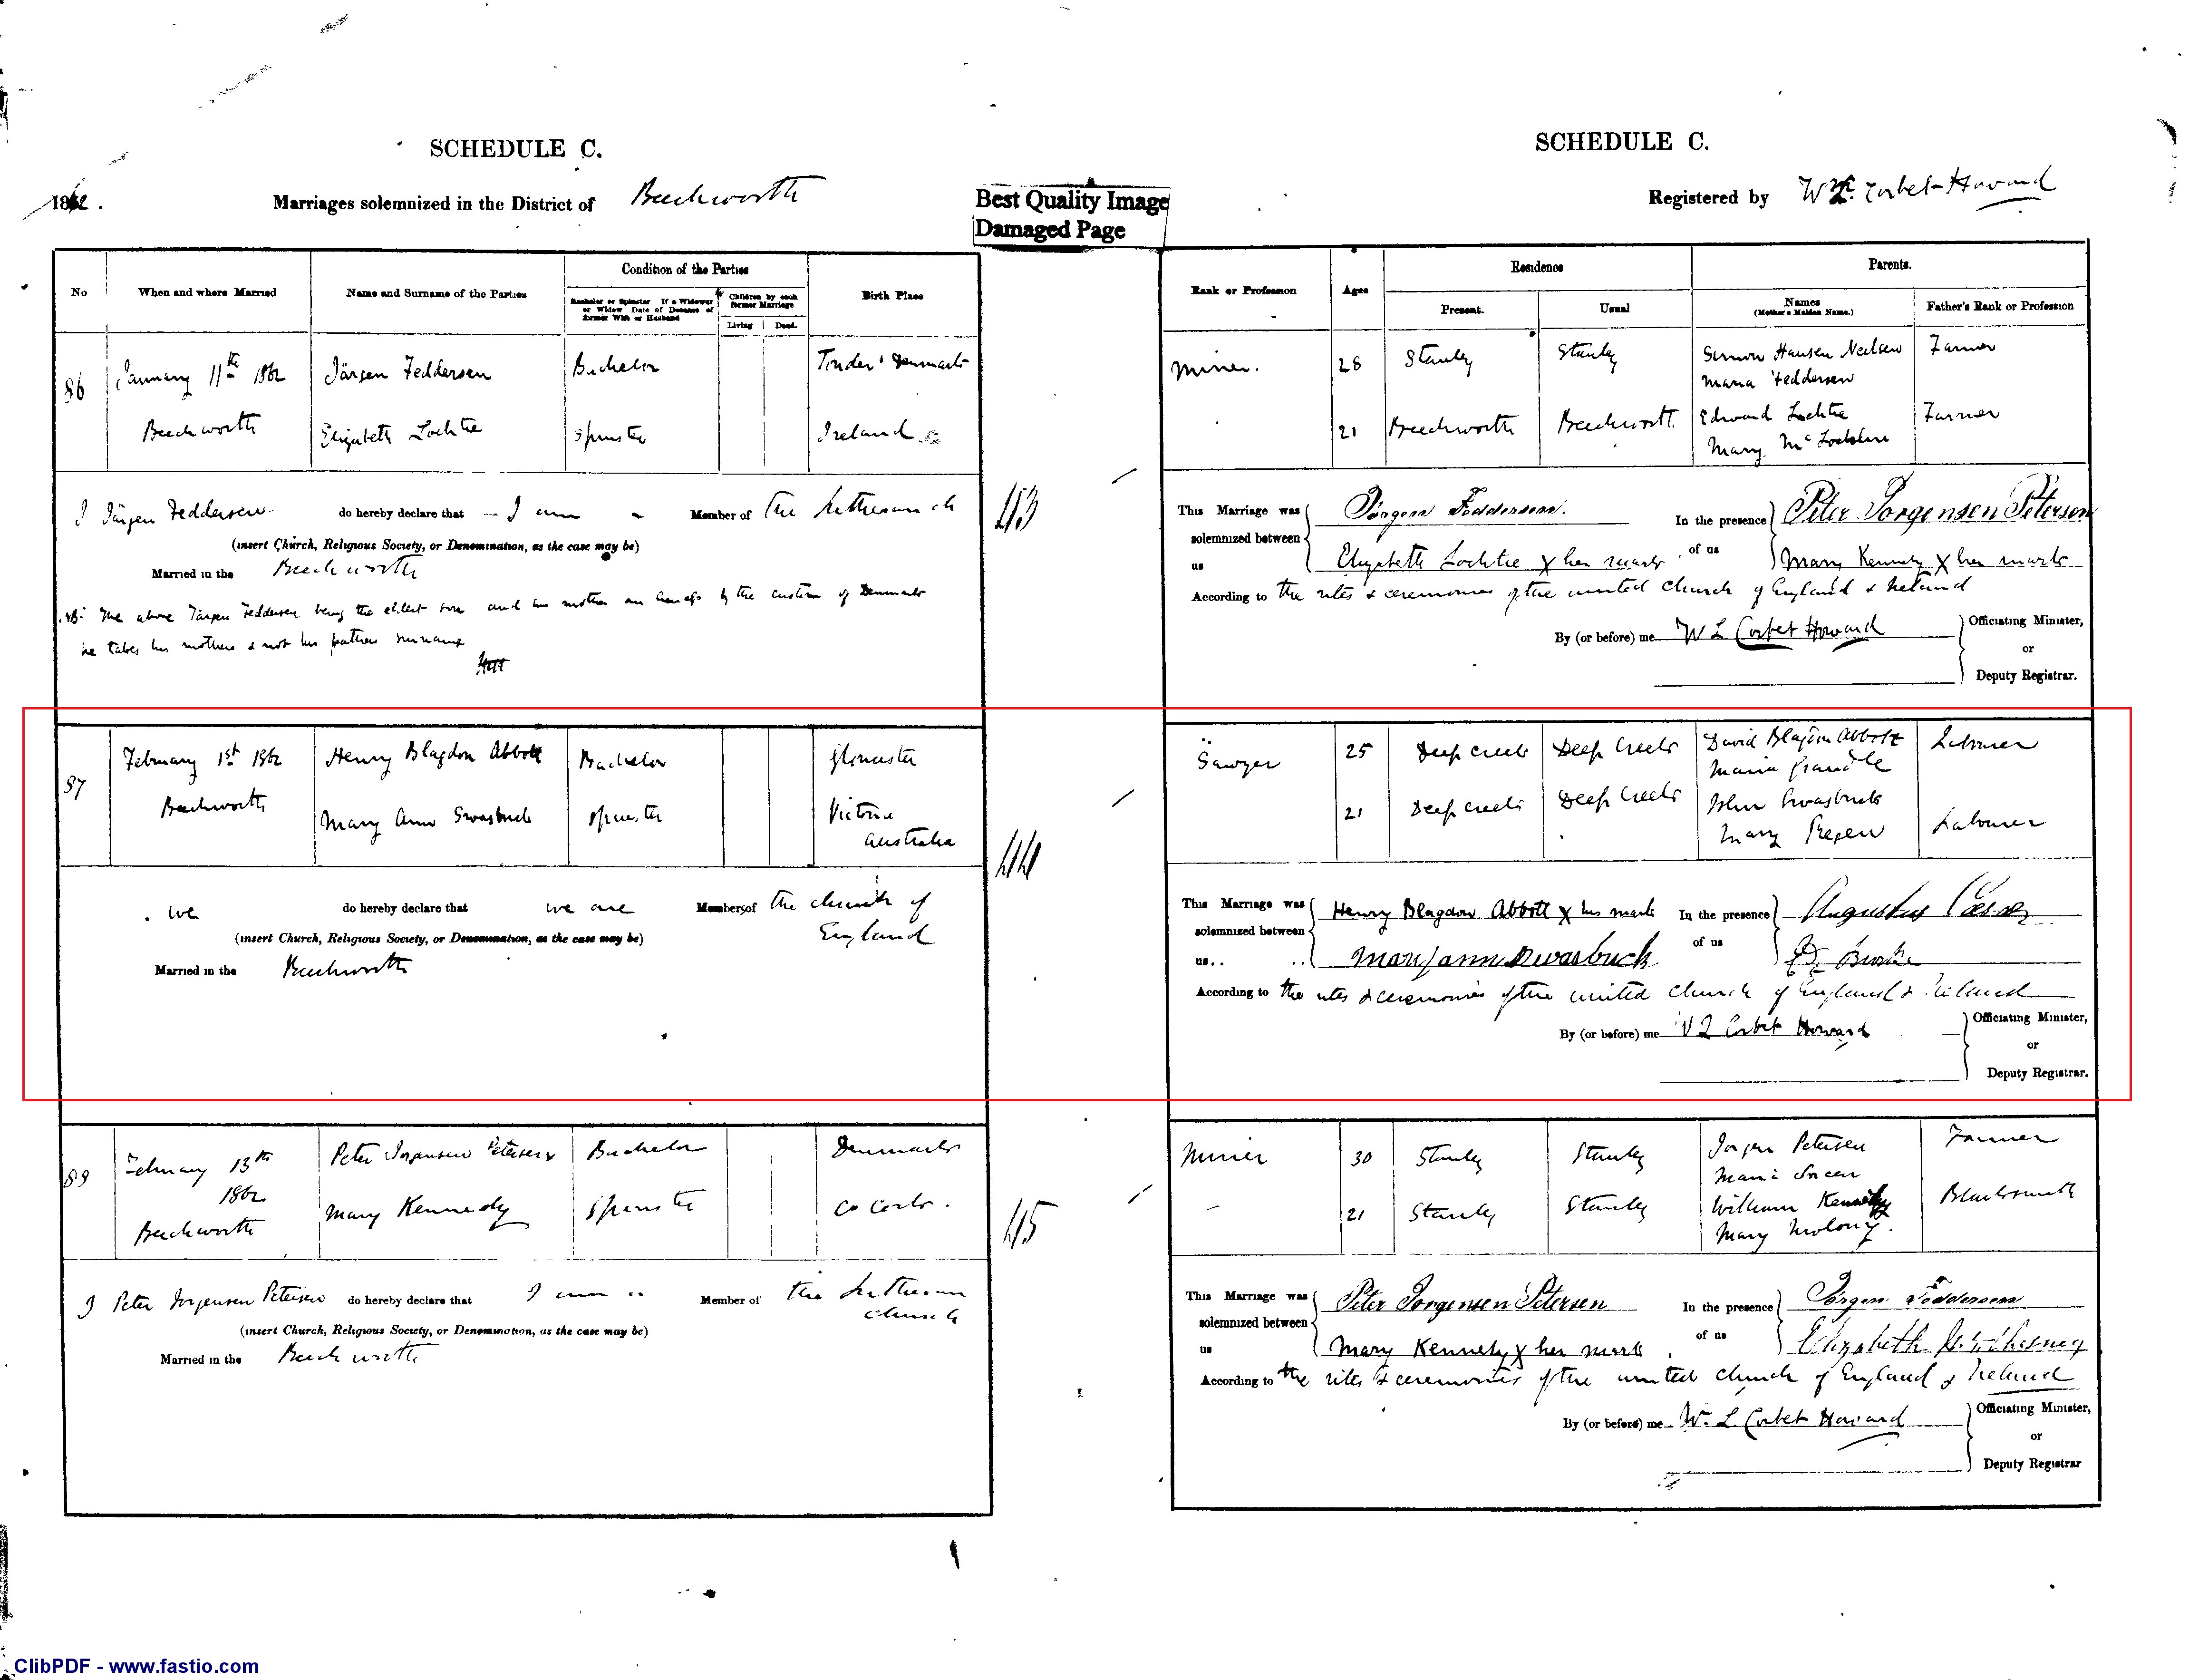 SCHEDULE C.
1862.
Marriages solemnized in the District of Beechworth
Best Quality Image
Damaged Page
SCHEDULE C.
Registered by Wm. Corbet Howard
No
When and where Married
Name and Surname of the Parties
Condition of the Parties
Bachelor or Spinster If a Widower
or Widow Date of Decease of
former Wife or Husband
Children by each
former Marriage
Living Dead.
Birth Place
Rank or Profession
Ages
Residence
Present.
Usual
Parents.
Names
(Mother's Maiden Name.)
Father's Rank or Profession
86
January 11th 1862
Beechworth
Jürgen Feddersen
Elizabeth Lochtie
Bachelor
Spinster
Tonder Denmark
Ireland
Miner.
28
21
Stanley
Beechworth
Stanley
Beechworth.
Simon Hansen Neilsen
Maria Feddersen
Edward Lochtie
Mary Mc
Farmer
Farmer
I Jürgen Feddersen do hereby declare that I am a Member of the Lutheran ch
(insert Church, Religious Society, or Denomination, as the case may be)
Married in the Beechworth
NB. The above Jürgen Feddersen being the eldest son and his mother an by the custom of Denmark
he takes his mothers & not his fathers surname
113
This Marriage was solemnized between us
Jörgen Feddersen.
Elizabeth Lochtie X her mark
In the presence of us
Peter Jorgensen Petersen
Mary Kennedy X her mark
According to the rites & ceremonies of the united church of England & Ireland
By (or before) me W L Corbet Howard
Officiating Minister,
or
Deputy Registrar.
87
February 1st 1862
Beechworth
Henry Blagdon Abbott
Mary Ann Swasbuck
Bachelor
Spinster
Gloucester
Victoria
Australia
Sawyer
25
21
Deep Creek
Deep Creek
Deep Creek
Deep Creek
David Blagdon Abbott
Maria
John Swasbuck
Mary
Labourer
Labourer
We do hereby declare that we are Members of the church of
(insert Church, Religious Society, or Denomination, as the case may be) England
Married in the Beechworth
114
This Marriage was solemnized between us..
Henry Blagdon Abbott X his mark
Mary ann Swasbuck
In the presence of us
Augustus
Burke
According to the rites & ceremonies of the united church of England & Ireland
By (or before) me W L Corbet Howard
Officiating Minister,
or
Deputy Registrar.
February 13th
1862
Beechworth
Peter Jorgensen Petersen
Mary Kennedy
Bachelor
Spinster
Denmark
Co Cork.
Miner
30
21
Stanley
Stanley
Stanley
Stanley
Jorgen Petersen
Maria
William Kennedy
Mary Molony.
Farmer
Blacksmith
I Peter Jorgensen Petersen do hereby declare that I am a Member of the Lutheran
(insert Church, Religious Society, or Denomination, as the case may be) church
Married in the Beechworth
115
This Marriage was solemnized between us
Peter Jorgensen Petersen
Mary Kennedy X her mark
In the presence of us
Jörgen Feddersen
Elizabeth
According to the rites & ceremonies of the united church of England & Ireland
By (or before) me W. L. Corbet Howard
Officiating Minister,
or
Deputy Registrar
ClibPDF - www.fastio.com